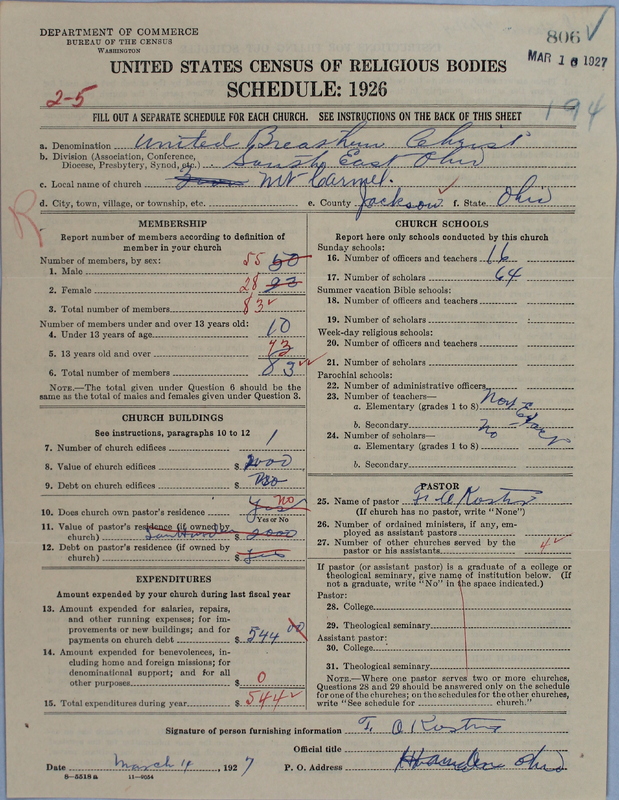 DEPARTMENT OF COMMERCE
BUREAU OF THE CENSUS
WASHINGTON
806 ✓
MAR 16 1927
UNITED STATES CENSUS OF RELIGIOUS BODIES
SCHEDULE: 1926
2-5
194
FILL OUT A SEPARATE SCHEDULE FOR EACH CHURCH. SEE INSTRUCTIONS ON THE BACK OF THIS SHEET
a. Denomination United Christ
b. Division (Association, Conference, Diocese, Presbytery, Synod, etc.) South East Ohio
c. Local name of church Mt Carmel.
d. City, town, village, or township, etc. e. County Jackson ✓ f. State Ohio
R
MEMBERSHIP
Report number of members according to definition of
member in your church
Number of members, by sex:
1. Male 55 50
2. Female 28 23
3. Total number of members 83 ✓
Number of members under and over 13 years old:
4. Under 13 years of age 10
5. 13 years old and over 73
6. Total number of members 83 ✓✓
NOTE.—The total given under Question 6 should be
same as the total of males and females given under Question 3.
CHURCH BUILDINGS
See instructions, paragraphs 10 to 12
7. Number of church edifices 1
8. Value of church edifices $ 2000
9. Debt on church edifices $ no
10. Does church own pastor's residence yes no
Yes or No
11. Value of pastor's residence (if owned by
church) $ 2000
12. Debt on pastor's residence (if owned by
church) $ yes
EXPENDITURES
Amount expended by your church during last fiscal year
13. Amount expended for salaries, repairs,
and other running expenses; for im-
provements or new buildings; and for
payments on church debt $ 544 00
14. Amount expended for benevolences, in-
cluding home and foreign missions; for
denominational support; and for all
other purposes $ 0
15. Total expenditures during year $ 544 ✓
CHURCH SCHOOLS
Report here only schools conducted by this church
Sunday schools:
16. Number of officers and teachers 16
17. Number of scholars 64
Summer vacation Bible schools:
18. Number of officers and teachers
19. Number of scholars
Week-day religious schools:
20. Number of officers and teachers
21. Number of scholars
Parochial schools:
22. Number of administrative officers
23. Number of teachers—
a. Elementary (grades 1 to 8)
b. Secondary No
24. Number of scholars—
a. Elementary (grades 1 to 8)
b. Secondary
PASTOR
25. Name of pastor
(If church has no pastor, write "None")
26. Number of ordained ministers, if any, em-
ployed as assistant pastors
27. Number of other churches served by the
pastor or his assistants 4 ✓
If pastor (or assistant pastor) is a graduate of a college or
theological seminary, give name of institution below. (If
not a graduate, write "No" in the space indicated.)
Pastor:
28. College
29. Theological seminary
Assistant pastor:
30. College
31. Theological seminary
NOTE.—Where one pastor serves two or more churches,
Questions 28 and 29 should be answered only on the schedule
for one of the churches; on the schedules for the other churches,
write "See schedule for church."
Signature of person furnishing information
Official title
Date March 4, 1927 P. O. Address Hamden Ohio
8—5518 a 11—9054